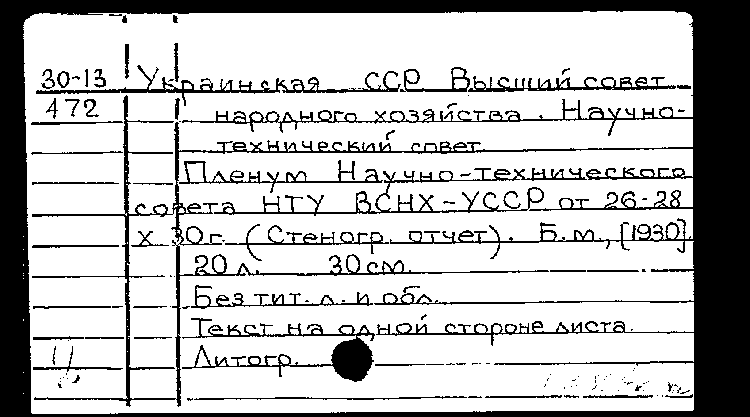 30-13 Украинская ССР Высший совет
472 народного хозяйства. Научно-
технический совет.
Пленум Научно-технического
совета НТУ ВСНХ-УССР от 26-28
X 30г. (Стеногр. отчет). Б.м., [1930].
20 л. 30 см.
Без тит. л. и обл.
Текст на одной стороне листа.
Литогр.